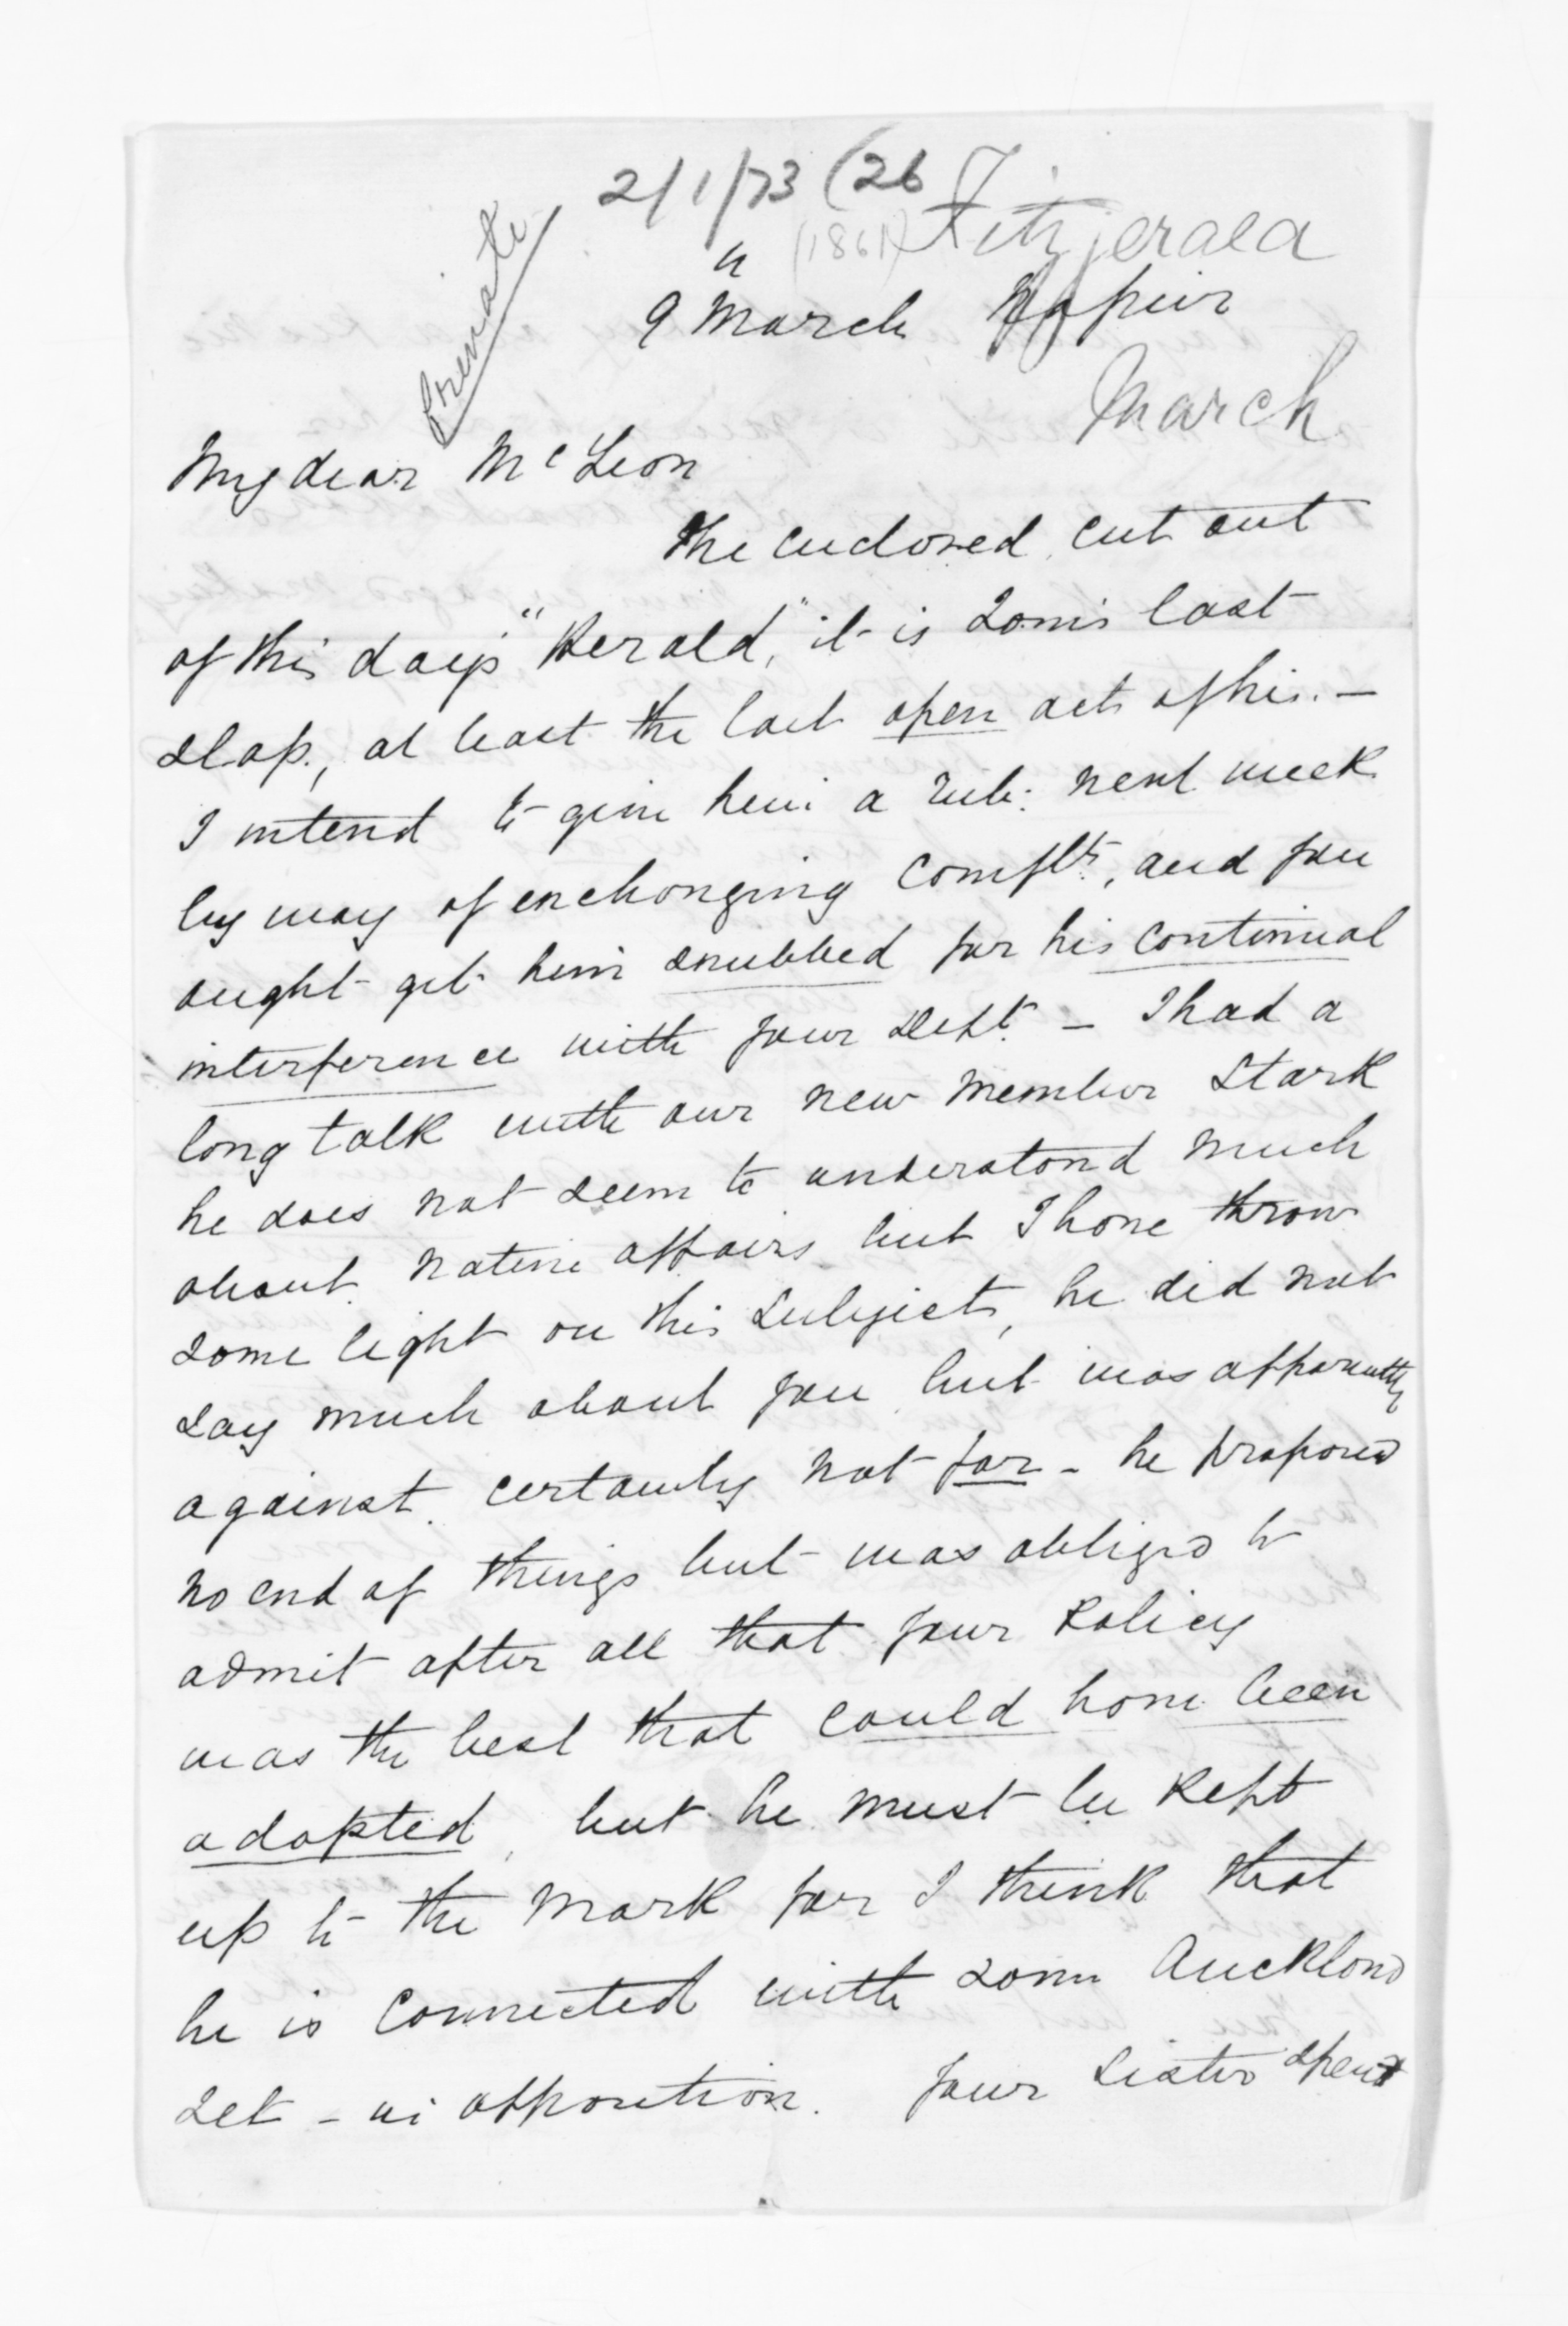 2/1/73 (26
(1861) Fitzgerald
Private
9 March Napier
March
My dear McLean
The enclosed cut out
of this day's "Herald," it is Tom's last
slap, at least the last open act of his. —
I intend to give him a rub: next week
by way of exchanging Complts, and you
ought get him snubbed for his continual
interference with your Dept — I had a
long talk with our new Member Stark
he does not seem to understand much
about Native affairs but I have throw
some light on this subject, he did not
say much about you but was apparently
against certainly not for - he proposed
no end of things but was obliged to
admit after all that your Policy
was the best that could have been
adopted, but he must be kept
up to the mark for I think that
he is connected with some Auckland
Set - in opposition. Your Sister spent